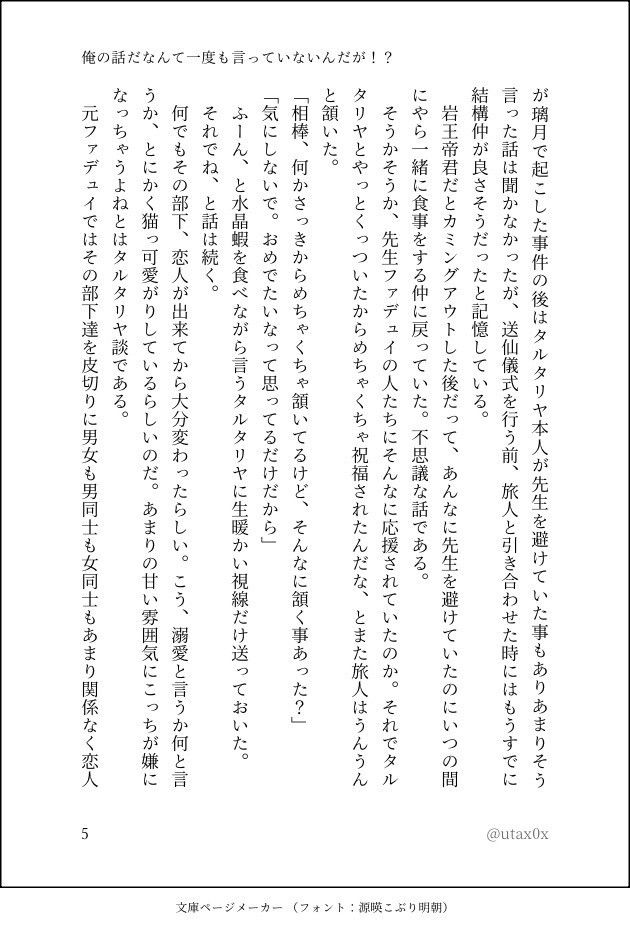 俺の話だなんて一度も言っていないんだが！？
が璃月で起こした事件の後はタルタリヤ本人が先生を避けていた事もありあまりそう
言った話は聞かなかったが、送仙儀式を行う前、旅人と引き合わせた時にはもうすでに
結構仲が良さそうだったと記憶している。
　岩王帝君だとカミングアウトした後だって、あんなに先生を避けていたのにいつの間
にやら一緒に食事をする仲に戻っていた。不思議な話である。
　そうかそうか、先生ファデュイの人たちにそんなに応援されていたのか。それでタル
タリヤとやっとくっついたからめちゃくちゃ祝福されたんだな、とまた旅人はうんうん
と頷いた。
「相棒、何かさっきからめちゃくちゃ頷いてるけど、そんなに頷く事あった？」
「気にしないで。おめでたいなって思ってるだけだから」
　ふーん、と水晶蝦を食べながら言うタルタリヤに生暖かい視線だけ送っておいた。
　それでね、と話は続く。
　何でもその部下、恋人が出来てから大分変わったらしい。こう、溺愛と言うか何と言
うか、とにかく猫っ可愛がりしているらしいのだ。あまりの甘い雰囲気にこっちが嫌に
なっちゃうよねとはタルタリヤ談である。
　元ファデュイではその部下達を皮切りに男女も男同士も女同士もあまり関係なく恋人
5
@utax0x
文庫ページメーカー（フォント：源暎こぶり明朝）